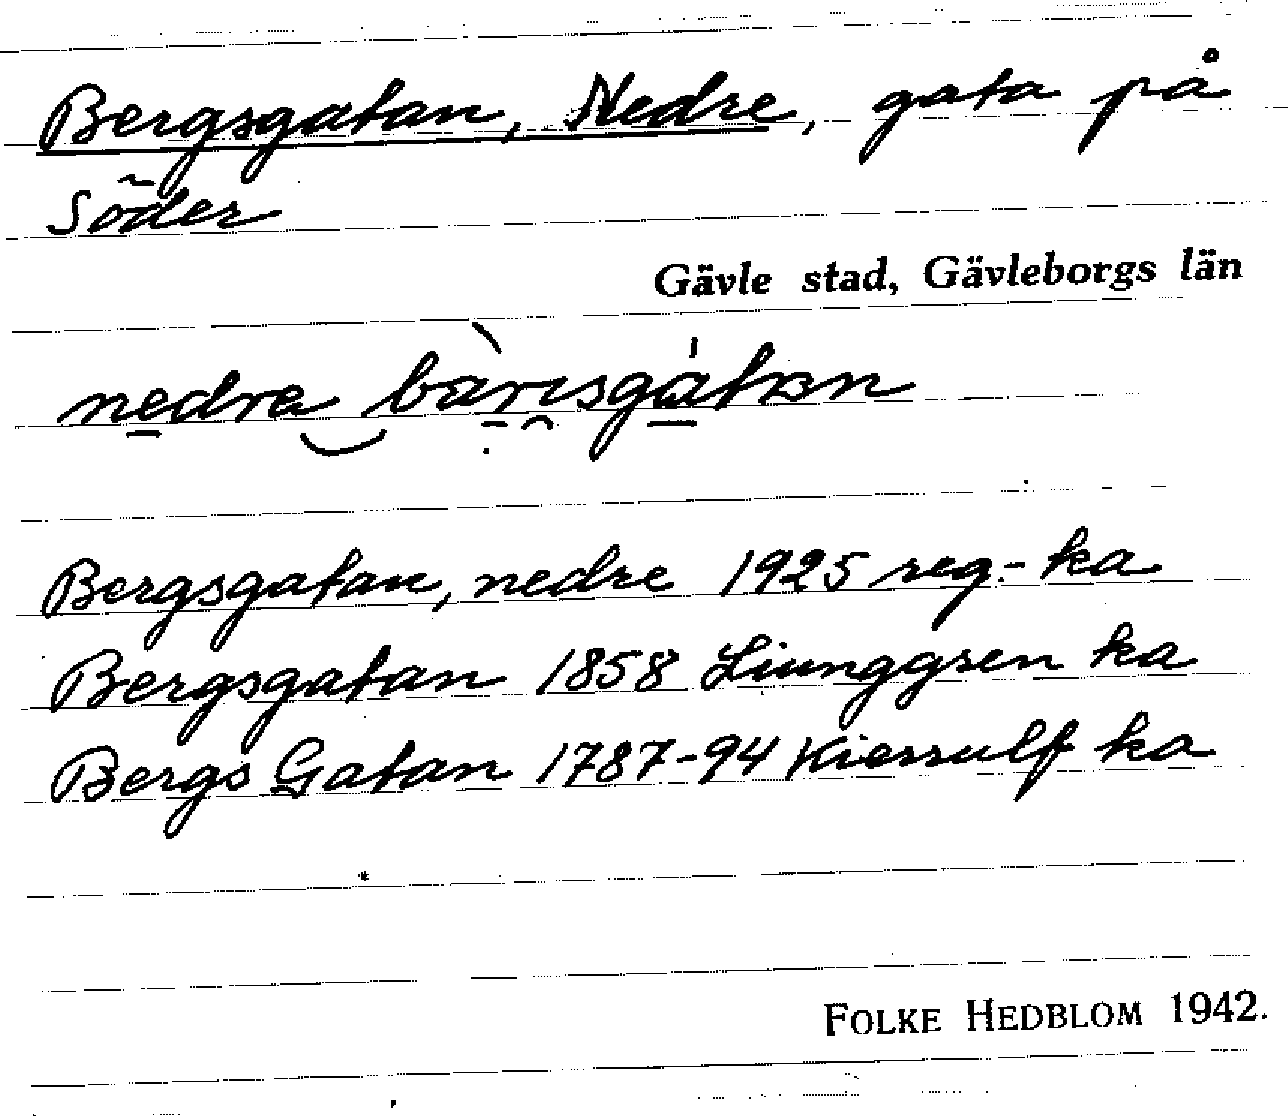 Bergsgatan, Nedre, gata på
Söder
Gävle stad, Gävleborgs län
nedre
Bergsgatan, nedre 1925 reg.-ka
Bergsgatan 1858 Liunggren ka
Bergs Gatan 1787-94 Kierrulf ka
FOLKE HEDBLOM 1942.